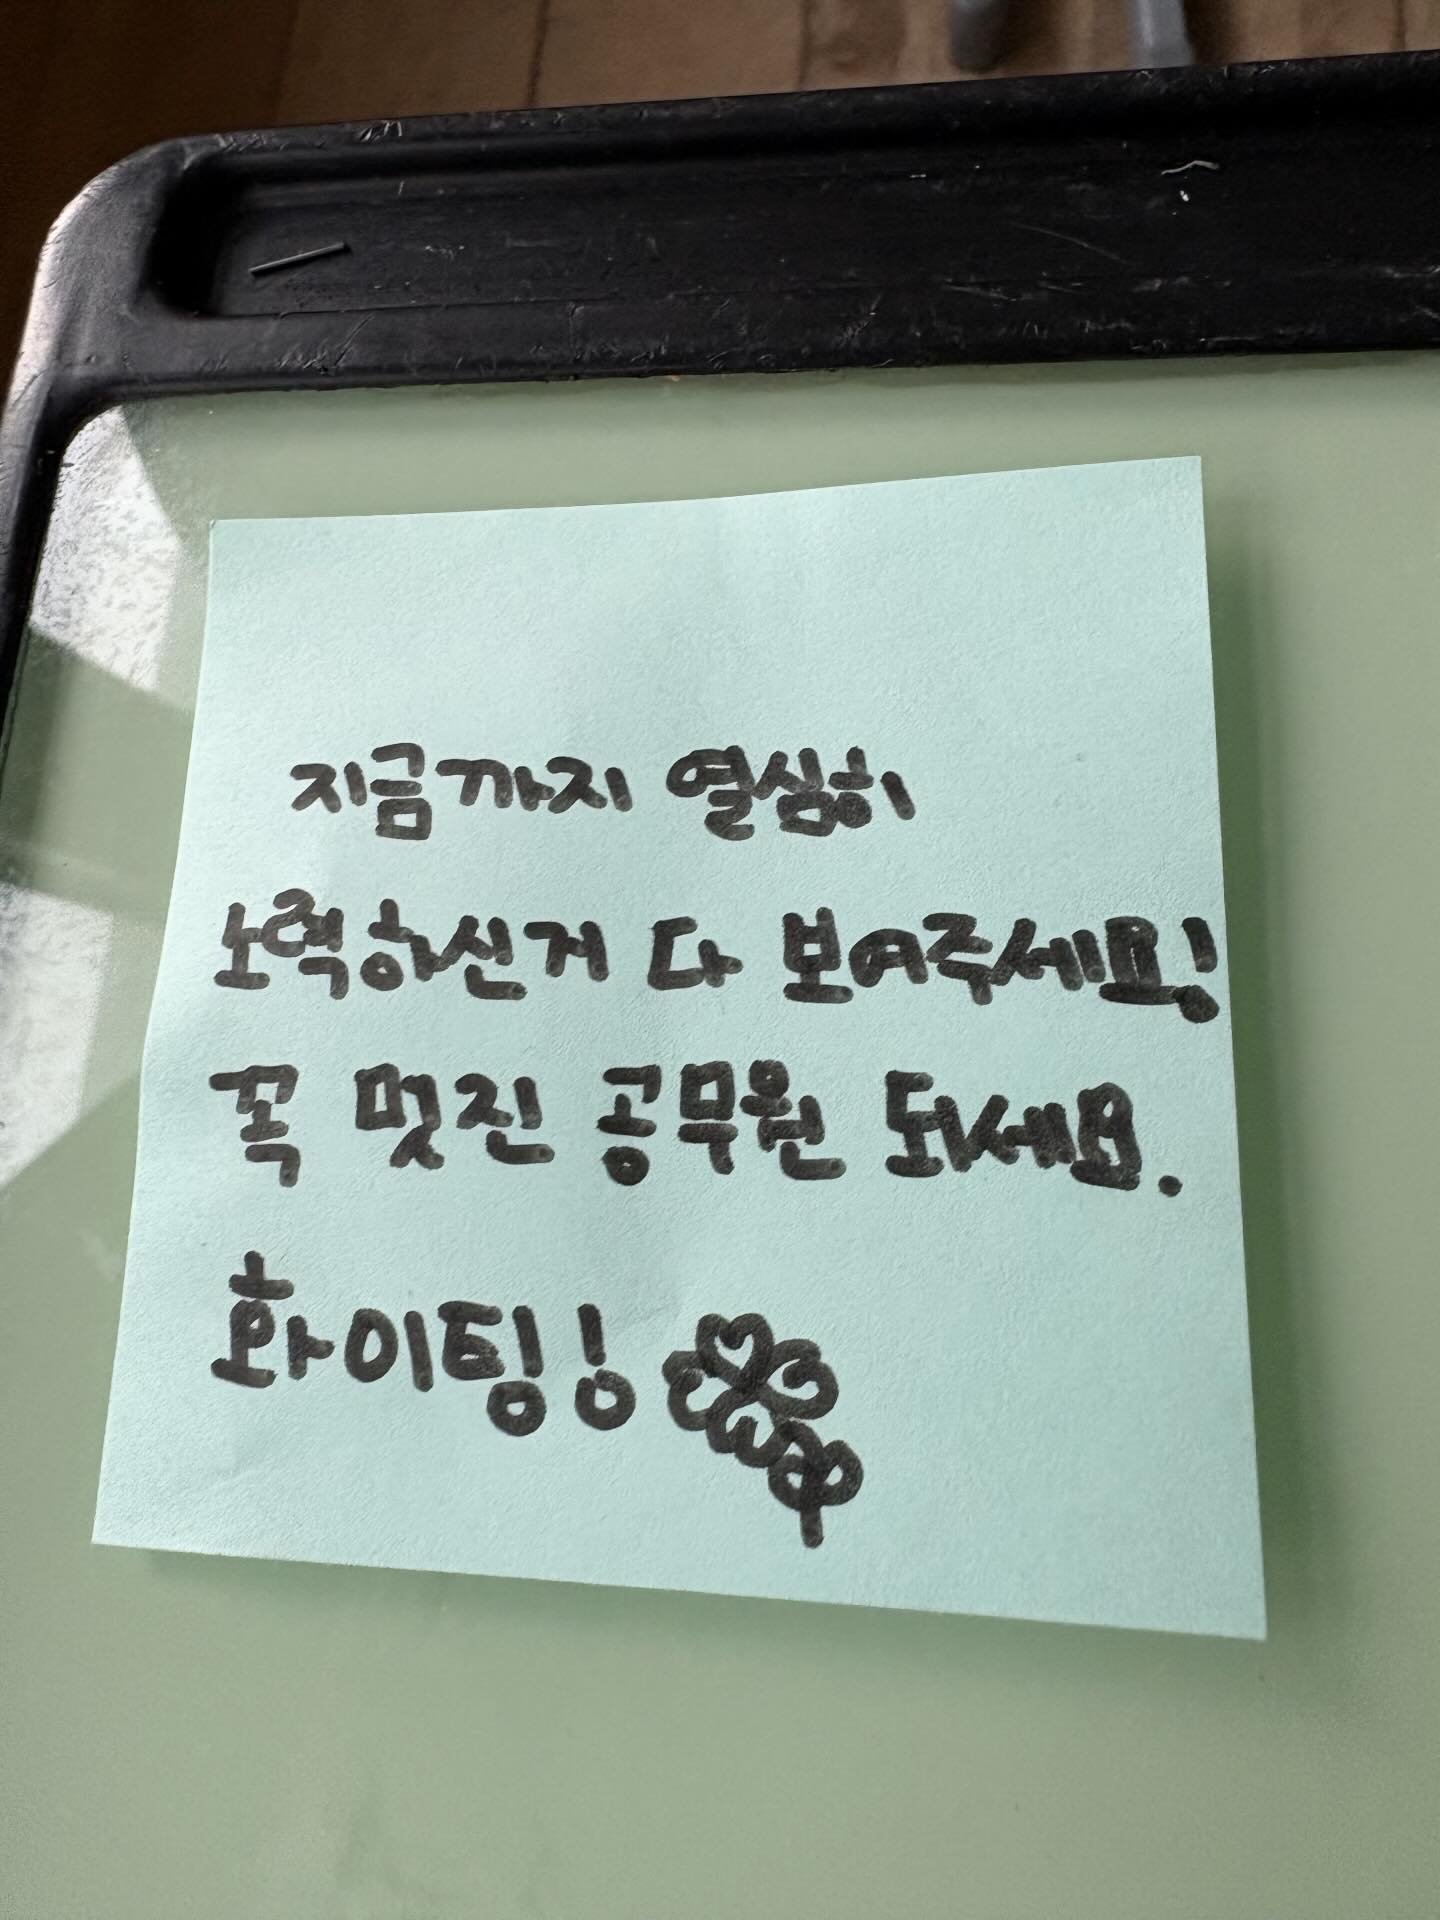 지금까지 열심히
노력하신거 다 보여주세요!
꼭 멋진 공무원 되세요.
화이팅!